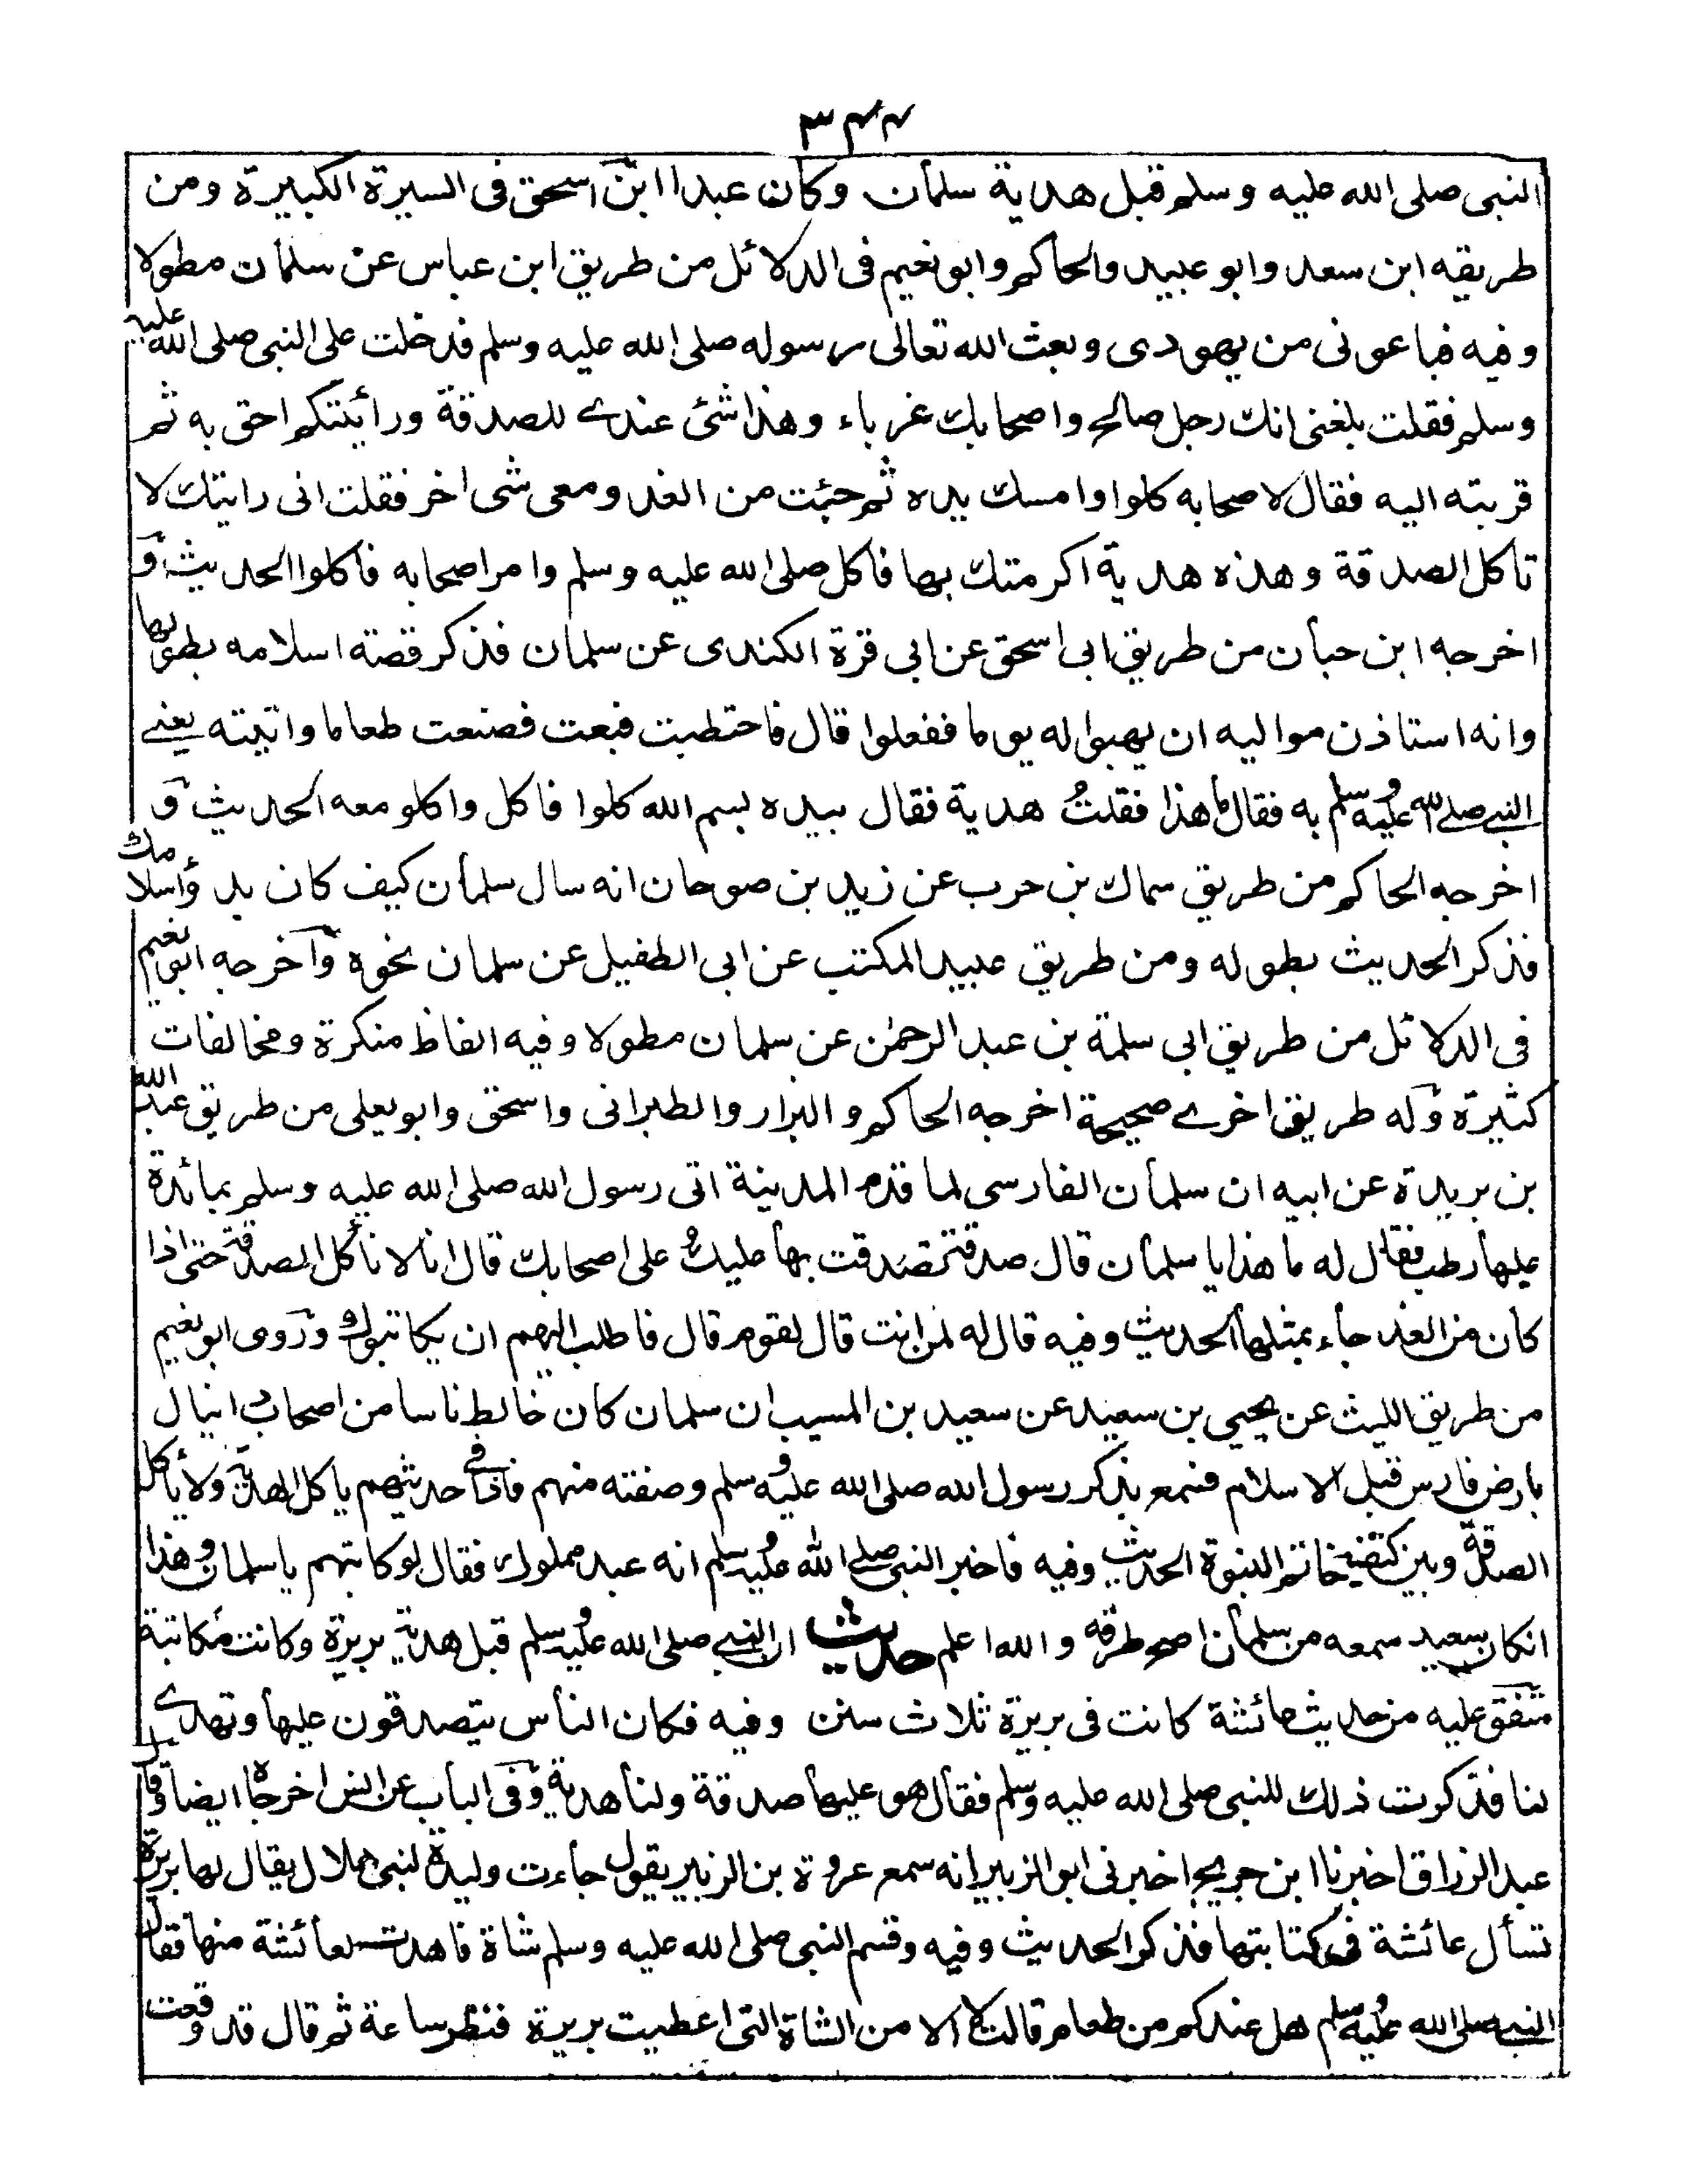 ٣٤٤
النبى صلى الله عليه وسلم قبل هدية سلمان وكان عبدا ابن اسحق فى السيرة الكبيرة ومن
طريقه ابن سعد وابو عبيد والحاكم وابو نعيم فى الدلائل من طريق ابن عباس عن سلمان مطولا
وفيه فباعونى من يهودى وبعث الله تعالى رسوله صلى الله عليه وسلم فدخلت على النبى صلى الله عليه
وسلم فقلت بلغنى انك رجل صالح واصحابك غرباء وهذا شئ عندے للصدقة ورائيتكم احق به ثم
قربته اليه فقال لاصحابه كلوا وامسك يده ثم جئت من الغد ومعى شى اخر فقلت انى رايتك لا
تاكل الصدقة وهذه هدية اكرمتك بها فاكل صلى الله عليه وسلم وامر اصحابه فاكلوا الحديث و
اخرجه ابن حبان من طريق ابى اسحق عن ابى قرة الكندى عن سلمان فذكر قصة اسلامه بطولها
وانه استاذن مواليه ان يهبوا له يوما ففعلوا قال فاحتطبت فبعت فصنعت طعاما واتيته يعنے
النبے صلے الله عليه وسلم به فقال ما هذا فقلتُ هدية فقال بيده بسم الله كلوا فاكل واكلو معه الحديث و
اخرجه الحاكم من طريق سماك بن حرب عن زيد بن صوحان انه سال سلمان كيف كان بدؤ اسلامك
فذكر الحديث بطوله ومن طريق عبيد المكتب عن ابى الطفيل عن سلمان نحوه واخرجه ابو نعيم
فى الدلائل من طريق ابى سلمة بن عبد الرحمٰن عن سلمان مطولا وفيه الفاظ منكرة ومخالفات
كثيرة وله طريق اخرے صحيحة اخرجه الحاكم والبزار والطبرانى واسحق وابو يعلى من طريق عبد الله
بن بريدة عن ابيه ان سلمان الفارسى لما قدم المدينة اتى رسول الله صلى الله عليه وسلم بمائدة
عليها رطب فقال له ما هذا يا سلمان قال صدقة تصدقت بها عليك وعلى اصحابك قال انا لا نأكل الصدقة حتى اذا
كان من الغد جاء بمثلها الحديث وفيه قال له لمن انت قال لقوم قال فاطلب اليهم ان يكاتبوك وروى ابو نعيم
من طريق الليث عن يحيى بن سعيد عن سعيد بن المسيب ان سلمان كان خالط ناسا من اصحاب دانيال
بارض فارس قبل الاسلام فسمع بذكر رسول الله صلى الله عليه وسلم وصفته منهم فاذا فے حديثهم ياكل الهدية ولا يأكل
الصدقة وبين كتفيه خاتم النبوة الحديث وفيه فاخبر النبى صلے الله عليه وسلم انه عبد مملوك فقال لو كاتبتهم يا سلمان وهذا
انكان سعيد سمعه من سلمان اصح طرقه والله اعلم حديث ان النبے صلى الله عليه وسلم قبل هدية بريرة وكانت مكاتبة
متفق عليه من حديث عائشة كانت فى بريرة ثلاث سنن وفيه فكان الناس يتصدقون عليها وتهدے
لنا فذكرت ذلك للنبى صلى الله عليه وسلم فقال هو عليها صدقة ولنا هدية وفى الباب عن انس اخرجاه ايضا وقال
عبد الرزاق اخبرنا ابن جريج اخبرنى ابو الزبير انه سمع عروة بن الزبير يقول جاءت وليدة لبنى هلال يقال لها بريرة
تسأل عائشة فى كتابتها فذكر الحديث وفيه وقسم النبى صلى الله عليه وسلم شاة فاهدت لعائشة منها فقال
النبے صلى الله عليه وسلم هل عندكم من طعام قالت لا الا من الشاة التى اعطيت بريرة فنظر ساعة ثم قال قد وقعت